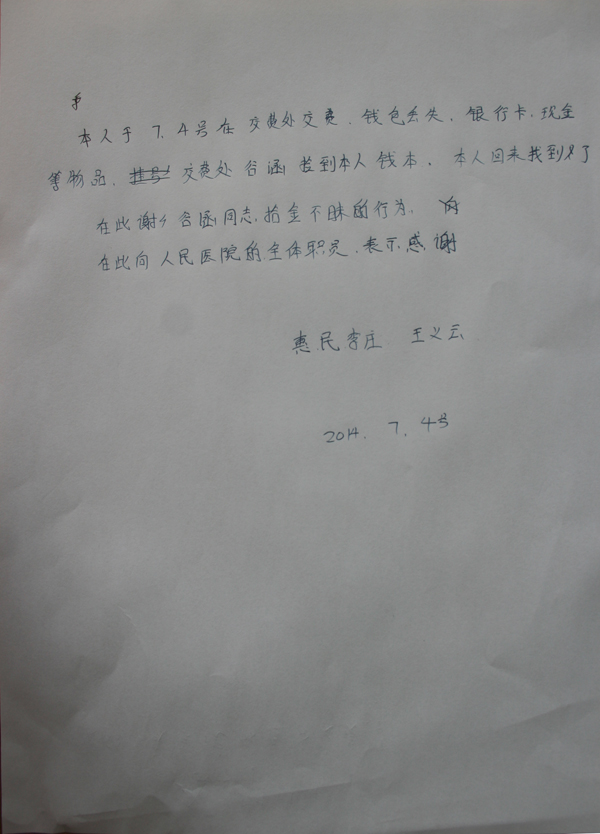 本人于 7.4号在 交费处交费.钱包丢失.银行卡.现金
等物品.交费处 谷涵 捡到本人 钱本.本人回来找到了
在此谢谢谷涵同志.拾金不昧的行为.
在此向人民医院的全体职员.表示感谢
惠民李庄 王义云
2014. 7. 4号